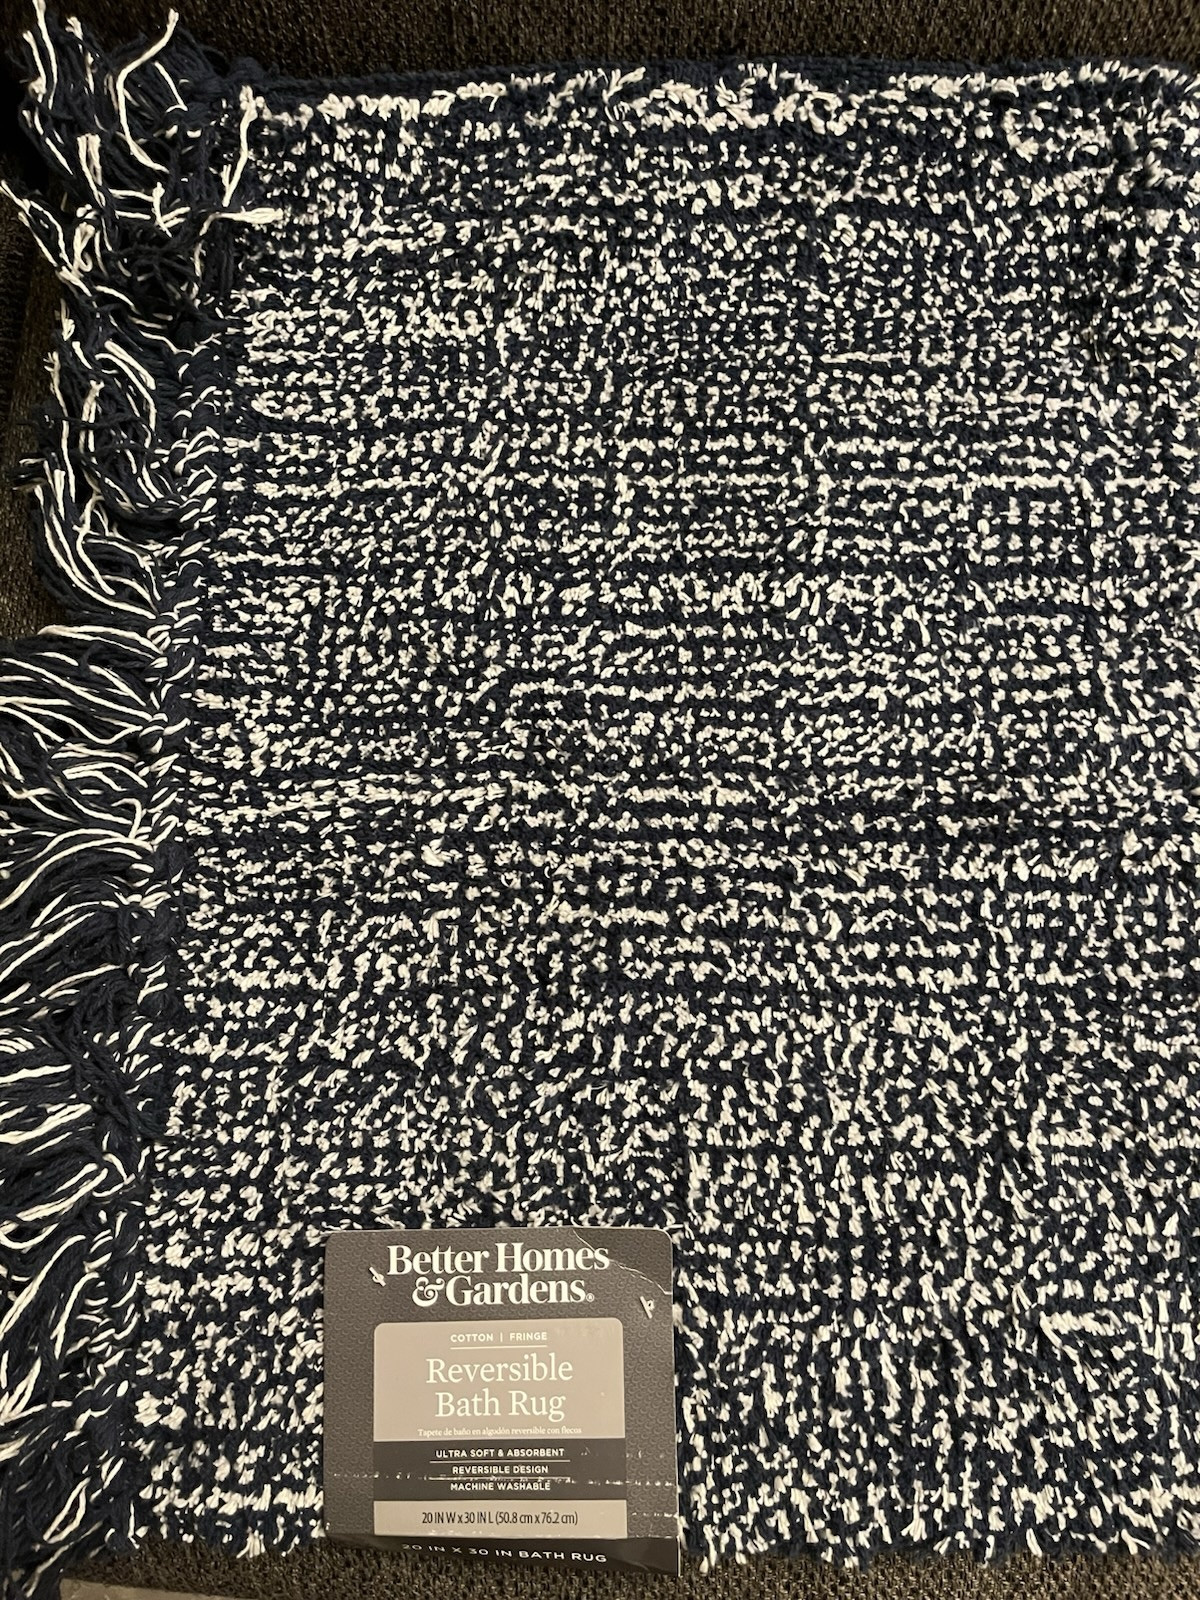 Better Homes
&Gardens®
COTTON | FRINGE
Reversible
Bath Rug
Tapete de baño en algodón reversible con flecos
ULTRA SOFT & ABSORBENT
REVERSIBLE DESIGN
MACHINE WASHABLE
20 IN W x 30 IN L (50.8 cm x 76.2 cm)
20 IN X 30 IN BATH RUG